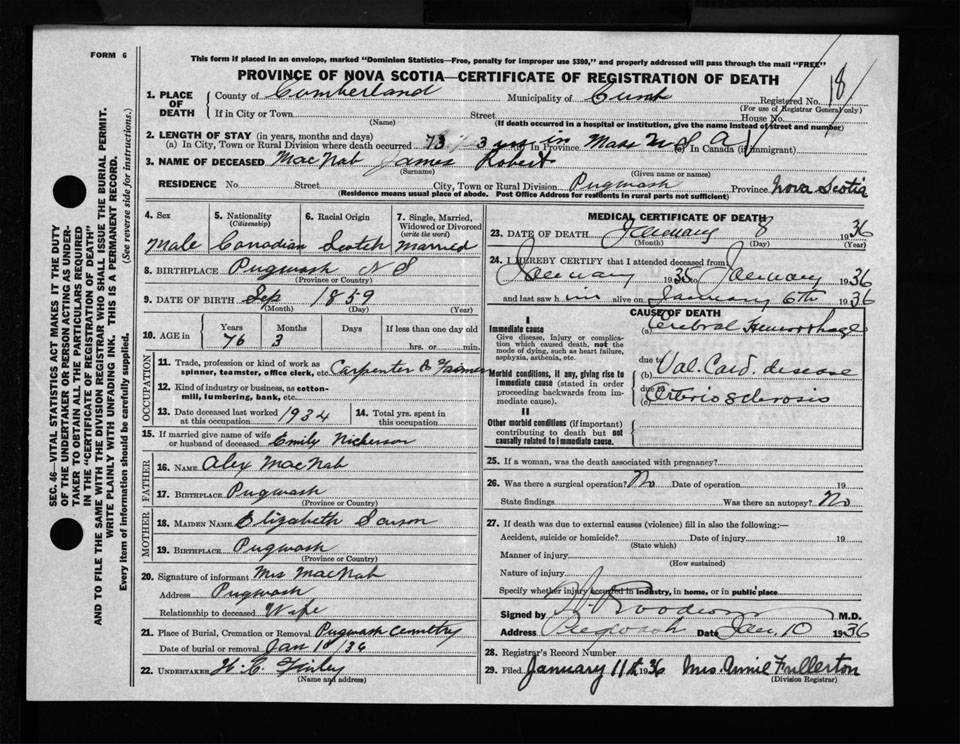 FORM 6
This form if placed in an envelope, marked "Dominion Statistics—Free, penalty for improper use $300," and properly addressed will pass through the mail "FREE"
PROVINCE OF NOVA SCOTIA—CERTIFICATE OF REGISTRATION OF DEATH
1. PLACE OF DEATH
County of Cumberland Municipality of Cumb Registered No. 18
(For use of Registrar General only)
If in City or Town Street House No.
(Name) (If death occurred in a hospital or institution, give the name instead of street and number)
2. LENGTH OF STAY (in years, months and days)
(a) In City, Town or Rural Division where death occurred 73 3 yrs in In Province Mass U S A (c) In Canada (if immigrant)
3. NAME OF DECEASED MacNab James Robert
(Surname) (Given name or names)
RESIDENCE No. Street City, Town or Rural Division Pugwash Province Nova Scotia
(Residence means usual place of abode. Post Office Address for residents in rural parts not sufficient)
4. Sex 5. Nationality (Citizenship) 6. Racial Origin 7. Single, Married, Widowed or Divorced (write the word)
Male Canadian Scotch Married
8. BIRTHPLACE Pugwash N S
(Province or Country)
9. DATE OF BIRTH Sep 1859
(Month) (Day) (Year)
10. AGE in Years Months Days If less than one day old
76 3 hrs. or min.
OCCUPATION
11. Trade, profession or kind of work as spinner, teamster, office clerk, etc. Carpenter & Farmer
12. Kind of industry or business, as cotton-mill, lumbering, bank, etc.
13. Date deceased last worked at this occupation 1934 14. Total yrs. spent in this occupation.
15. If married give name of wife or husband of deceased Emily Nickerson
FATHER
16. NAME Alex MacNab
17. BIRTHPLACE Pugwash
(Province or Country)
MOTHER
18. MAIDEN NAME Elizabeth
19. BIRTHPLACE Pugwash
(Province or Country)
20. Signature of informant Mrs MacNab
Address Pugwash
Relationship to deceased Wife
21. Place of Burial, Cremation or Removal Pugwash Cemetry
Date of burial or removal Jan 36
22. UNDERTAKER
(Name and address)
MEDICAL CERTIFICATE OF DEATH
23. DATE OF DEATH January 8 1936
(Month) (Day) (Year)
24. I HEREBY CERTIFY that I attended deceased from
January 1935 to January 1936
and last saw him alive on January 6th 1936
CAUSE OF DEATH
I
Immediate cause
Give disease, injury or complication which caused death, not the mode of dying, such as heart failure, asphyxia, asthenia, etc.
(a) Cerebral Hemorrhage
due to
Morbid conditions, if any, giving rise to immediate cause (stated in order proceeding backwards from immediate cause).
(b) Val. Card. disease
due to
(c) Arteriosclerosis
II
Other morbid conditions (if important) contributing to death but not causally related to immediate cause.
25. If a woman, was the death associated with pregnancy?
26. Was there a surgical operation? No Date of operation 19
State findings Was there an autopsy? No
27. If death was due to external causes (violence) fill in also the following:—
Accident, suicide or homicide? Date of injury 19
(State which)
Manner of injury
(How sustained)
Nature of injury
Specify whether injury occurred in industry, in home, or in public place
Signed by M.D.
Address Pugwash Date Jan. 10 1936
28. Registrar's Record Number
29. Filed January 11th 1936 Mrs Fullerton
(Division Registrar)
SEC. 46—VITAL STATISTICS ACT MAKES IT THE DUTY
OF THE UNDERTAKER OR PERSON ACTING AS UNDER-
TAKER TO OBTAIN ALL THE PARTICULARS REQUIRED
IN THE "CERTIFICATE OF REGISTRATION OF DEATH"
AND TO FILE THE SAME WITH THE DIVISION REGISTRAR WHO SHALL ISSUE THE BURIAL PERMIT.
WRITE PLAINLY WITH UNFADING INK. THIS IS A PERMANENT RECORD.
Every item of information should be carefully supplied. (See reverse side for instructions.)